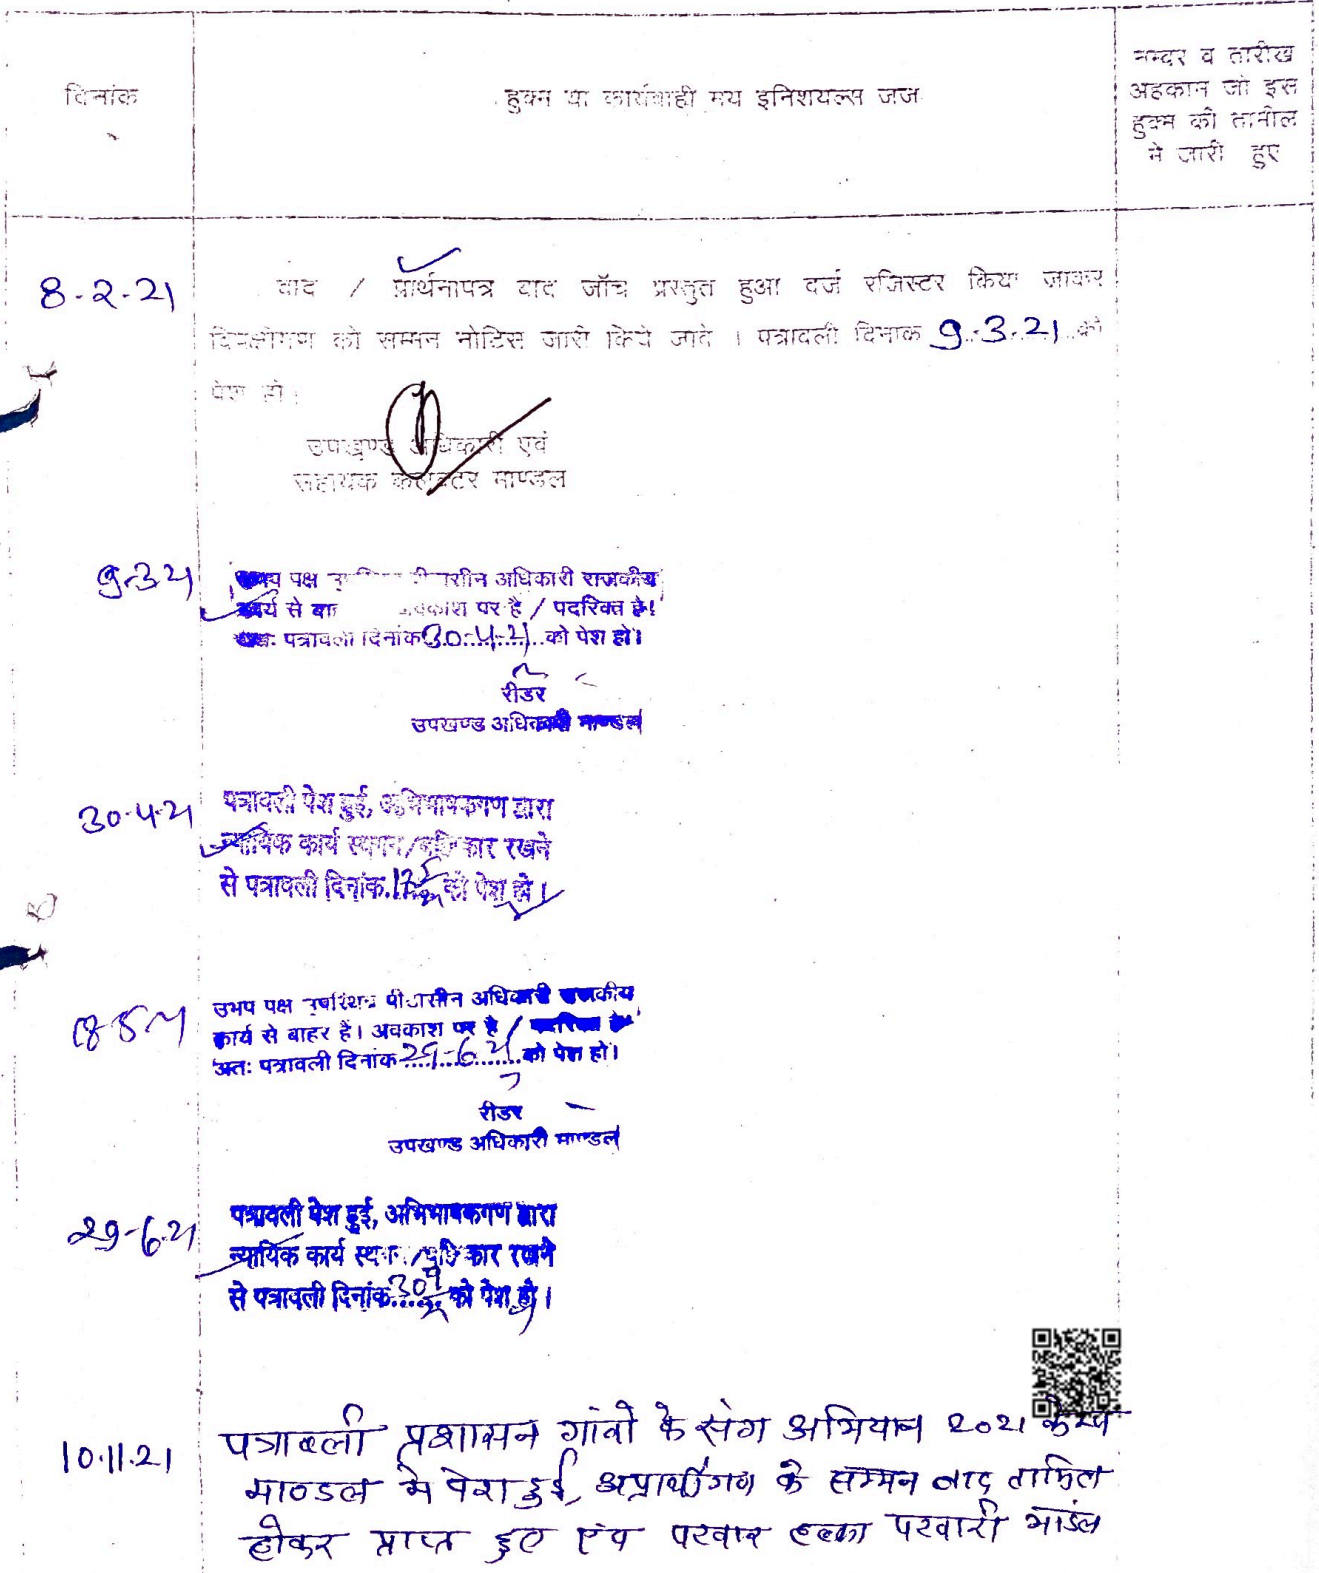 दिनांक
हुक्म या कार्यवाही मय इनिशयल्स जज
नम्बर व तारीख
अहकाम जो इस
हुक्म की तामील
में जारी हुए
8-2-21
वाद / प्रार्थनापत्र बाद जॉच प्रस्तुत हुआ दर्ज रजिस्टर किया जाकर
विपक्षीगण को सम्मन नोटिस जारी किये जावे । पत्रावली दिनाक 9.3.21 को
पेश हो ।
उपखण्ड अधिकारी एवं
सहायक कलक्टर माण्डल
9-3-21
उभय पक्ष अधिकारी राजकीय
कार्य से अवकाश पर है / पदरिक्त है।
अतः पत्रावली दिनांक 30.4.21 को पेश हो।
रीडर
उपखण्ड अधिकारी माण्डल
30-4-21
पत्रावली पेश हुई, अभिभाषकगण द्वारा
न्यायिक कार्य स्थगन/बहिष्कार रखने
से पत्रावली दिनांक को पेश हो।
18-5-21
उभय पक्ष उपस्थित पीठासीन अधिकारी राजकीय
कार्य से बाहर है। अवकाश पर है / पदरिक्त है
अतः पत्रावली दिनांक 29-6-21 को पेश हो।
रीडर
उपखण्ड अधिकारी माण्डल
29-6-21
पत्रावली पेश हुई, अभिभाषकगण द्वारा
न्यायिक कार्य स्थगन/बहिष्कार रखने
से पत्रावली दिनांक को पेश हो।
10.11.21
पत्रावली प्रशासन गांवो के संग अभियान 2021 केम्प
माण्डल मे पेश हुई, अप्रार्थीगण के सम्मन बाद तामिल
होकर प्राप्त हुए एंव पटवार हल्का पटवारी मांडल